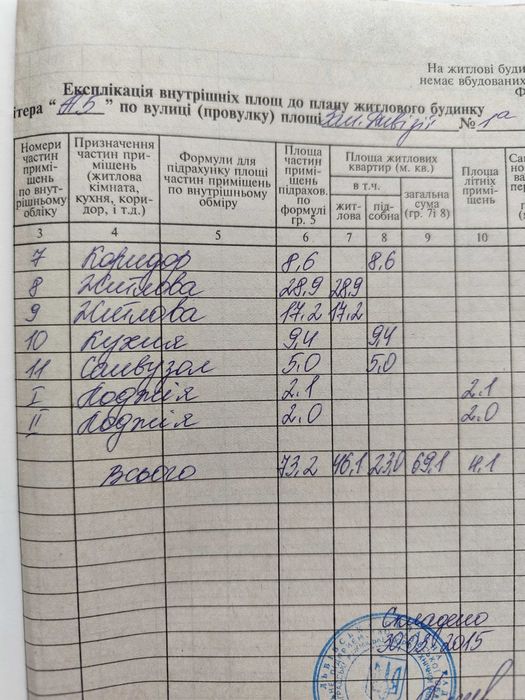 На житлові буди
немає вбудованих
Ф
Експлікація внутрішніх площ до плану житлового будинку
ітера "А5" по вулиці (провулку) площі Зал. Дивізії № 1а
Номери частин приміщень по внутрішньому обліку
Призначення частин приміщень (житлова кімната, кухня, коридор, і т.д.)
Формули для підрахунку площі частин приміщень по внутрішньому обміру
Площа частин приміщень підрахов. по формулі гр. 5
Площа житлових квартир (м. кв.)
в т.ч.
житлова
підсобна
загальна сума (гр. 7і 8)
Площа літніх приміщень
3 4 5 6 7 8 9 10
7 Коридор 8,6 8,6
8 Житлова 28,9 28,9
9 Житлова 17,2 17,2
10 Кухня 9,4 9,4
11 Санвузол 5,0 5,0
I Лоджія 2.1 2.1
II Лоджія 2.0 2.0
Всього 73,2 46,1 23,0 69,1 4,1
Складено
2015